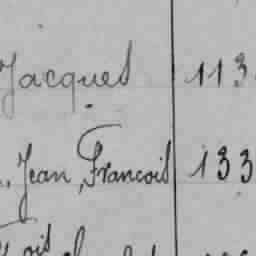 Jacques 113
Jean, Francois 133